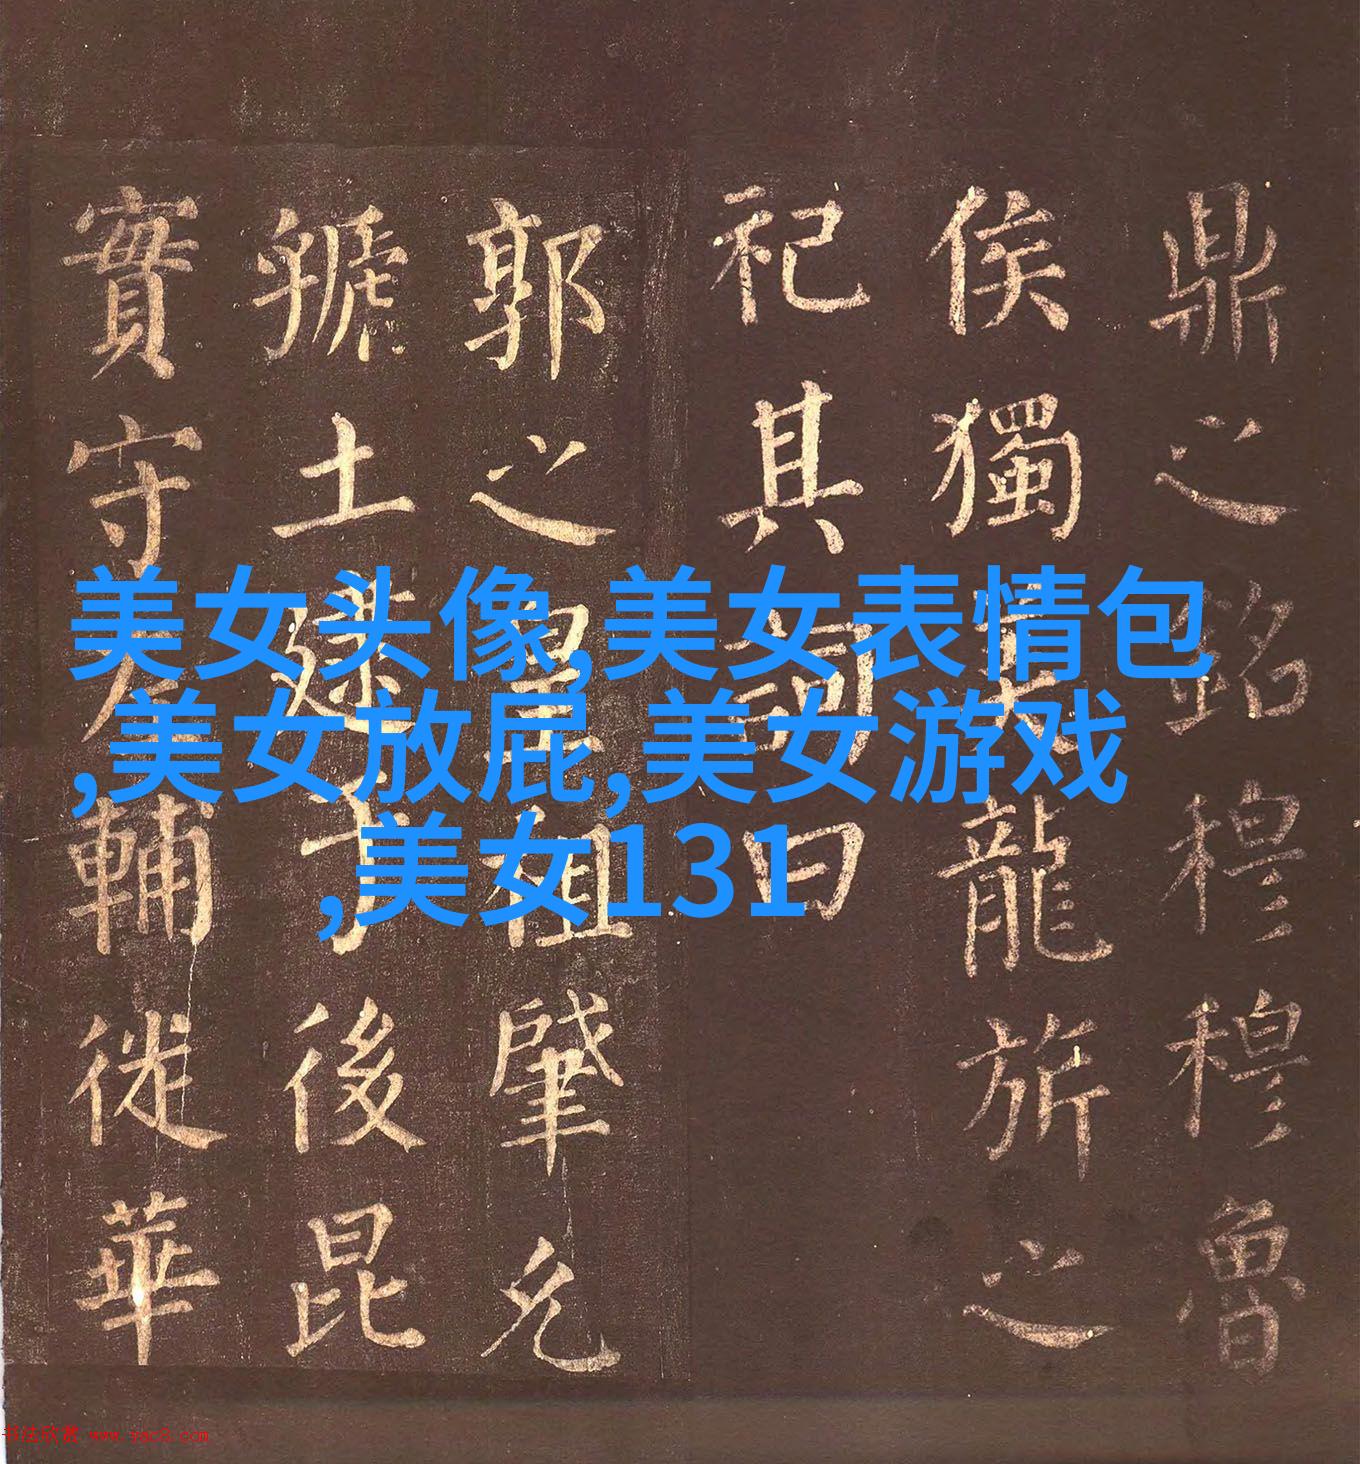 鼎之銘穆穆魯
侯獨龍旂之
祀其詞曰
郭之皇祖肇允
虢土逮于後昆
實守左輔徙華
美女头像,美女表情包
,美女放屁,美女游戏
,美女131
书法欣赏 www.yac8.com